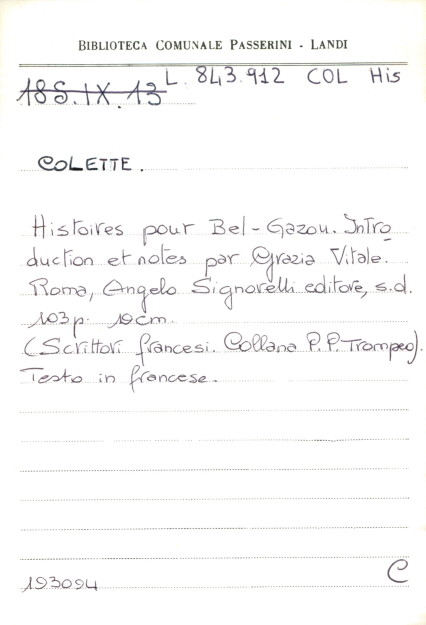 BIBLIOTECA COMUNALE PASSERINI - LANDI
L. 843.912 COL His
18S.IX.13
COLETTE.
Histoires pour Bel-Gazou. Intro
duction et notes par Grazia Vitale.
Roma, Angelo Signorelli editore, s.d.
103 p. 19cm.
(Scrittori francesi. Collana P.P. Trompeo).
Testo in francese.
193094
C